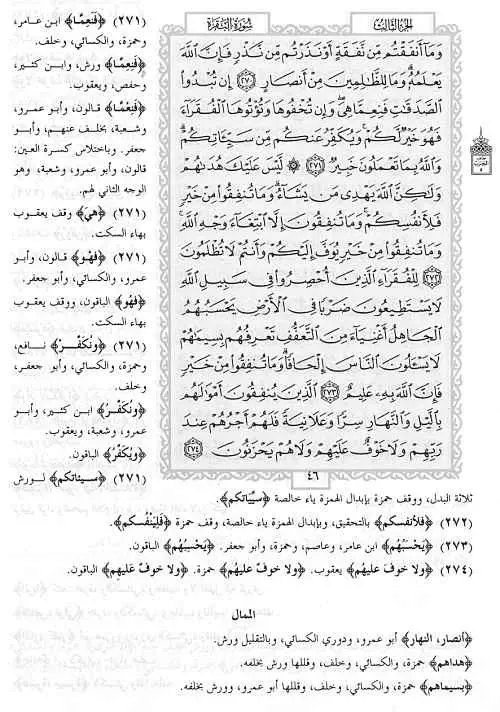 الجزء الثالث
سورة البقرة
وَمَا أَنفَقْتُم مِّن نَّفَقَةٍ أَوْ نَذَرْتُم مِّن نَّذْرٍ فَإِنَّ اللَّهَ
يَعْلَمُهُ وَمَا لِلظَّالِمِينَ مِنْ أَنصَارٍ ﴿٢٧٠﴾ إِن تُبْدُوا
الصَّدَقَاتِ فَنِعِمَّا هِيَ وَإِن تُخْفُوهَا وَتُؤْتُوهَا الْفُقَرَاءَ
فَهُوَ خَيْرٌ لَّكُمْ وَيُكَفِّرُ عَنكُم مِّن سَيِّئَاتِكُمْ
وَاللَّهُ بِمَا تَعْمَلُونَ خَبِيرٌ ﴿٢٧١﴾ لَّيْسَ عَلَيْكَ هُدَاهُمْ
وَلَٰكِنَّ اللَّهَ يَهْدِي مَن يَشَاءُ وَمَا تُنفِقُوا مِنْ خَيْرٍ
فَلِأَنفُسِكُمْ وَمَا تُنفِقُونَ إِلَّا ابْتِغَاءَ وَجْهِ اللَّهِ
وَمَا تُنفِقُوا مِنْ خَيْرٍ يُوَفَّ إِلَيْكُمْ وَأَنتُمْ لَا تُظْلَمُونَ
﴿٢٧٢﴾ لِلْفُقَرَاءِ الَّذِينَ أُحْصِرُوا فِي سَبِيلِ اللَّهِ
لَا يَسْتَطِيعُونَ ضَرْبًا فِي الْأَرْضِ يَحْسَبُهُمُ
الْجَاهِلُ أَغْنِيَاءَ مِنَ التَّعَفُّفِ تَعْرِفُهُم بِسِيمَاهُمْ
لَا يَسْأَلُونَ النَّاسَ إِلْحَافًا وَمَا تُنفِقُوا مِنْ خَيْرٍ
فَإِنَّ اللَّهَ بِهِ عَلِيمٌ ﴿٢٧٣﴾ الَّذِينَ يُنفِقُونَ أَمْوَالَهُم
بِاللَّيْلِ وَالنَّهَارِ سِرًّا وَعَلَانِيَةً فَلَهُمْ أَجْرُهُمْ عِندَ
رَبِّهِمْ وَلَا خَوْفٌ عَلَيْهِمْ وَلَا هُمْ يَحْزَنُونَ ﴿٢٧٤﴾
٤٦
(٢٧١) ﴿فَنَعِمَّا﴾ ابن عامر،
وحمزة، والكسائي، وخلف.
﴿فَنِعِمَّا﴾ ورش، وابن كثير،
وحفص، ويعقوب.
﴿فَنِعْمَّا﴾ قالون، وأبو عمرو،
وشعبة، بخلف عنهم، وأبو
جعفر. وباختلاس كسرة العين:
قالون، وأبو عمرو، وشعبة، وهو
الوجه الثاني لهم.
(٢٧١) ﴿هي﴾ وقف يعقوب
بهاء السكت.
(٢٧١) ﴿فَهْو﴾ قالون، وأبو
عمرو، والكسائي، وأبو جعفر.
﴿فَهُو﴾ الباقون، ووقف يعقوب
بهاء السكت.
(٢٧١) ﴿ونُكَفِّرْ﴾ نافع،
وحمزة، والكسائي، وأبو جعفر،
وخلف.
﴿ونُكَفِّرُ﴾ ابن كثير، وأبو
عمرو، وشعبة، ويعقوب.
﴿ويُكَفِّرُ﴾ الباقون.
(٢٧١) ﴿سيئاتكم﴾ لورش
ثلاثة البدل، ووقف حمزة بإبدال الهمزة ياء خالصة ﴿سيّياتكم﴾.
(٢٧٢) ﴿فلأنفسكم﴾ بالتحقيق، وبإبدال الهمزة ياء خالصة، وقف حمزة ﴿فَلِيَنْفُسكم﴾.
(٢٧٣) ﴿يَحْسَبُهُم﴾ ابن عامر، وعاصم، وحمزة، وأبو جعفر. ﴿يَحْسِبُهُم﴾ الباقون.
(٢٧٤) ﴿ولا خوفَ عليهُم﴾ يعقوب. ﴿ولا خوفٌ عليهُم﴾ حمزة. ﴿ولا خوفٌ عليهِم﴾ الباقون.
الممال
﴿أنصار، النهار﴾ أبو عمرو، ودوري الكسائي، وبالتقليل ورش.
﴿هداهم﴾ حمزة، والكسائي، وخلف، وقللها ورش بخلفه.
﴿بسيماهم﴾ حمزة، والكسائي، وخلف، وقللها أبو عمرو، وورش بخلفه.